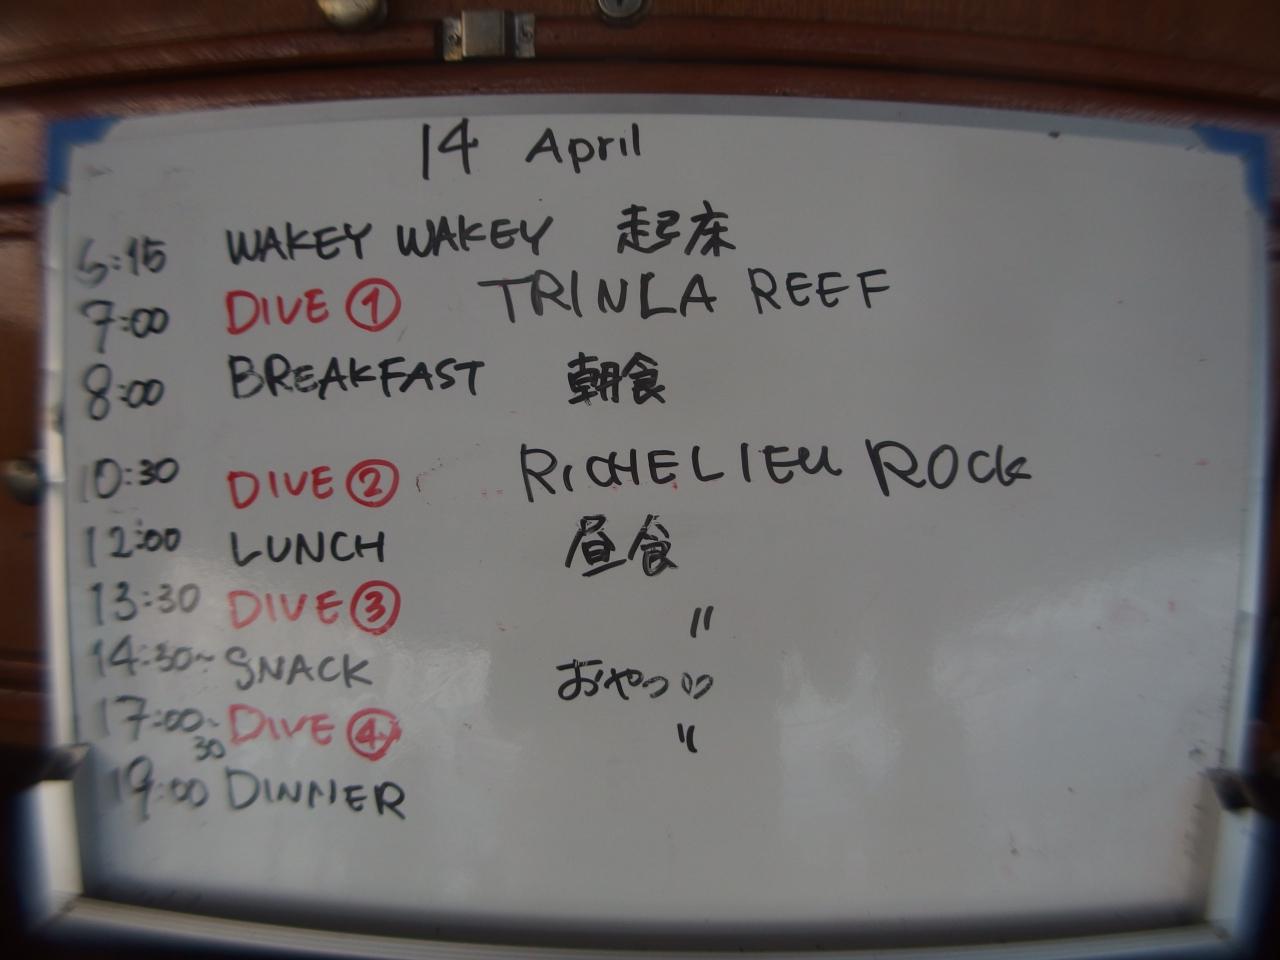 14 April
6:15 WAKEY WAKEY 起床
7:00 DIVE ① TRINLA REEF
8:00 BREAKFAST 朝食
10:30 DIVE ② RICHELIEU ROCK
12:00 LUNCH 昼食
13:30 DIVE ③ 〃
14:30~ SNACK おやつ
17:00~ DIVE ④ 〃
30
19:00 DINNER